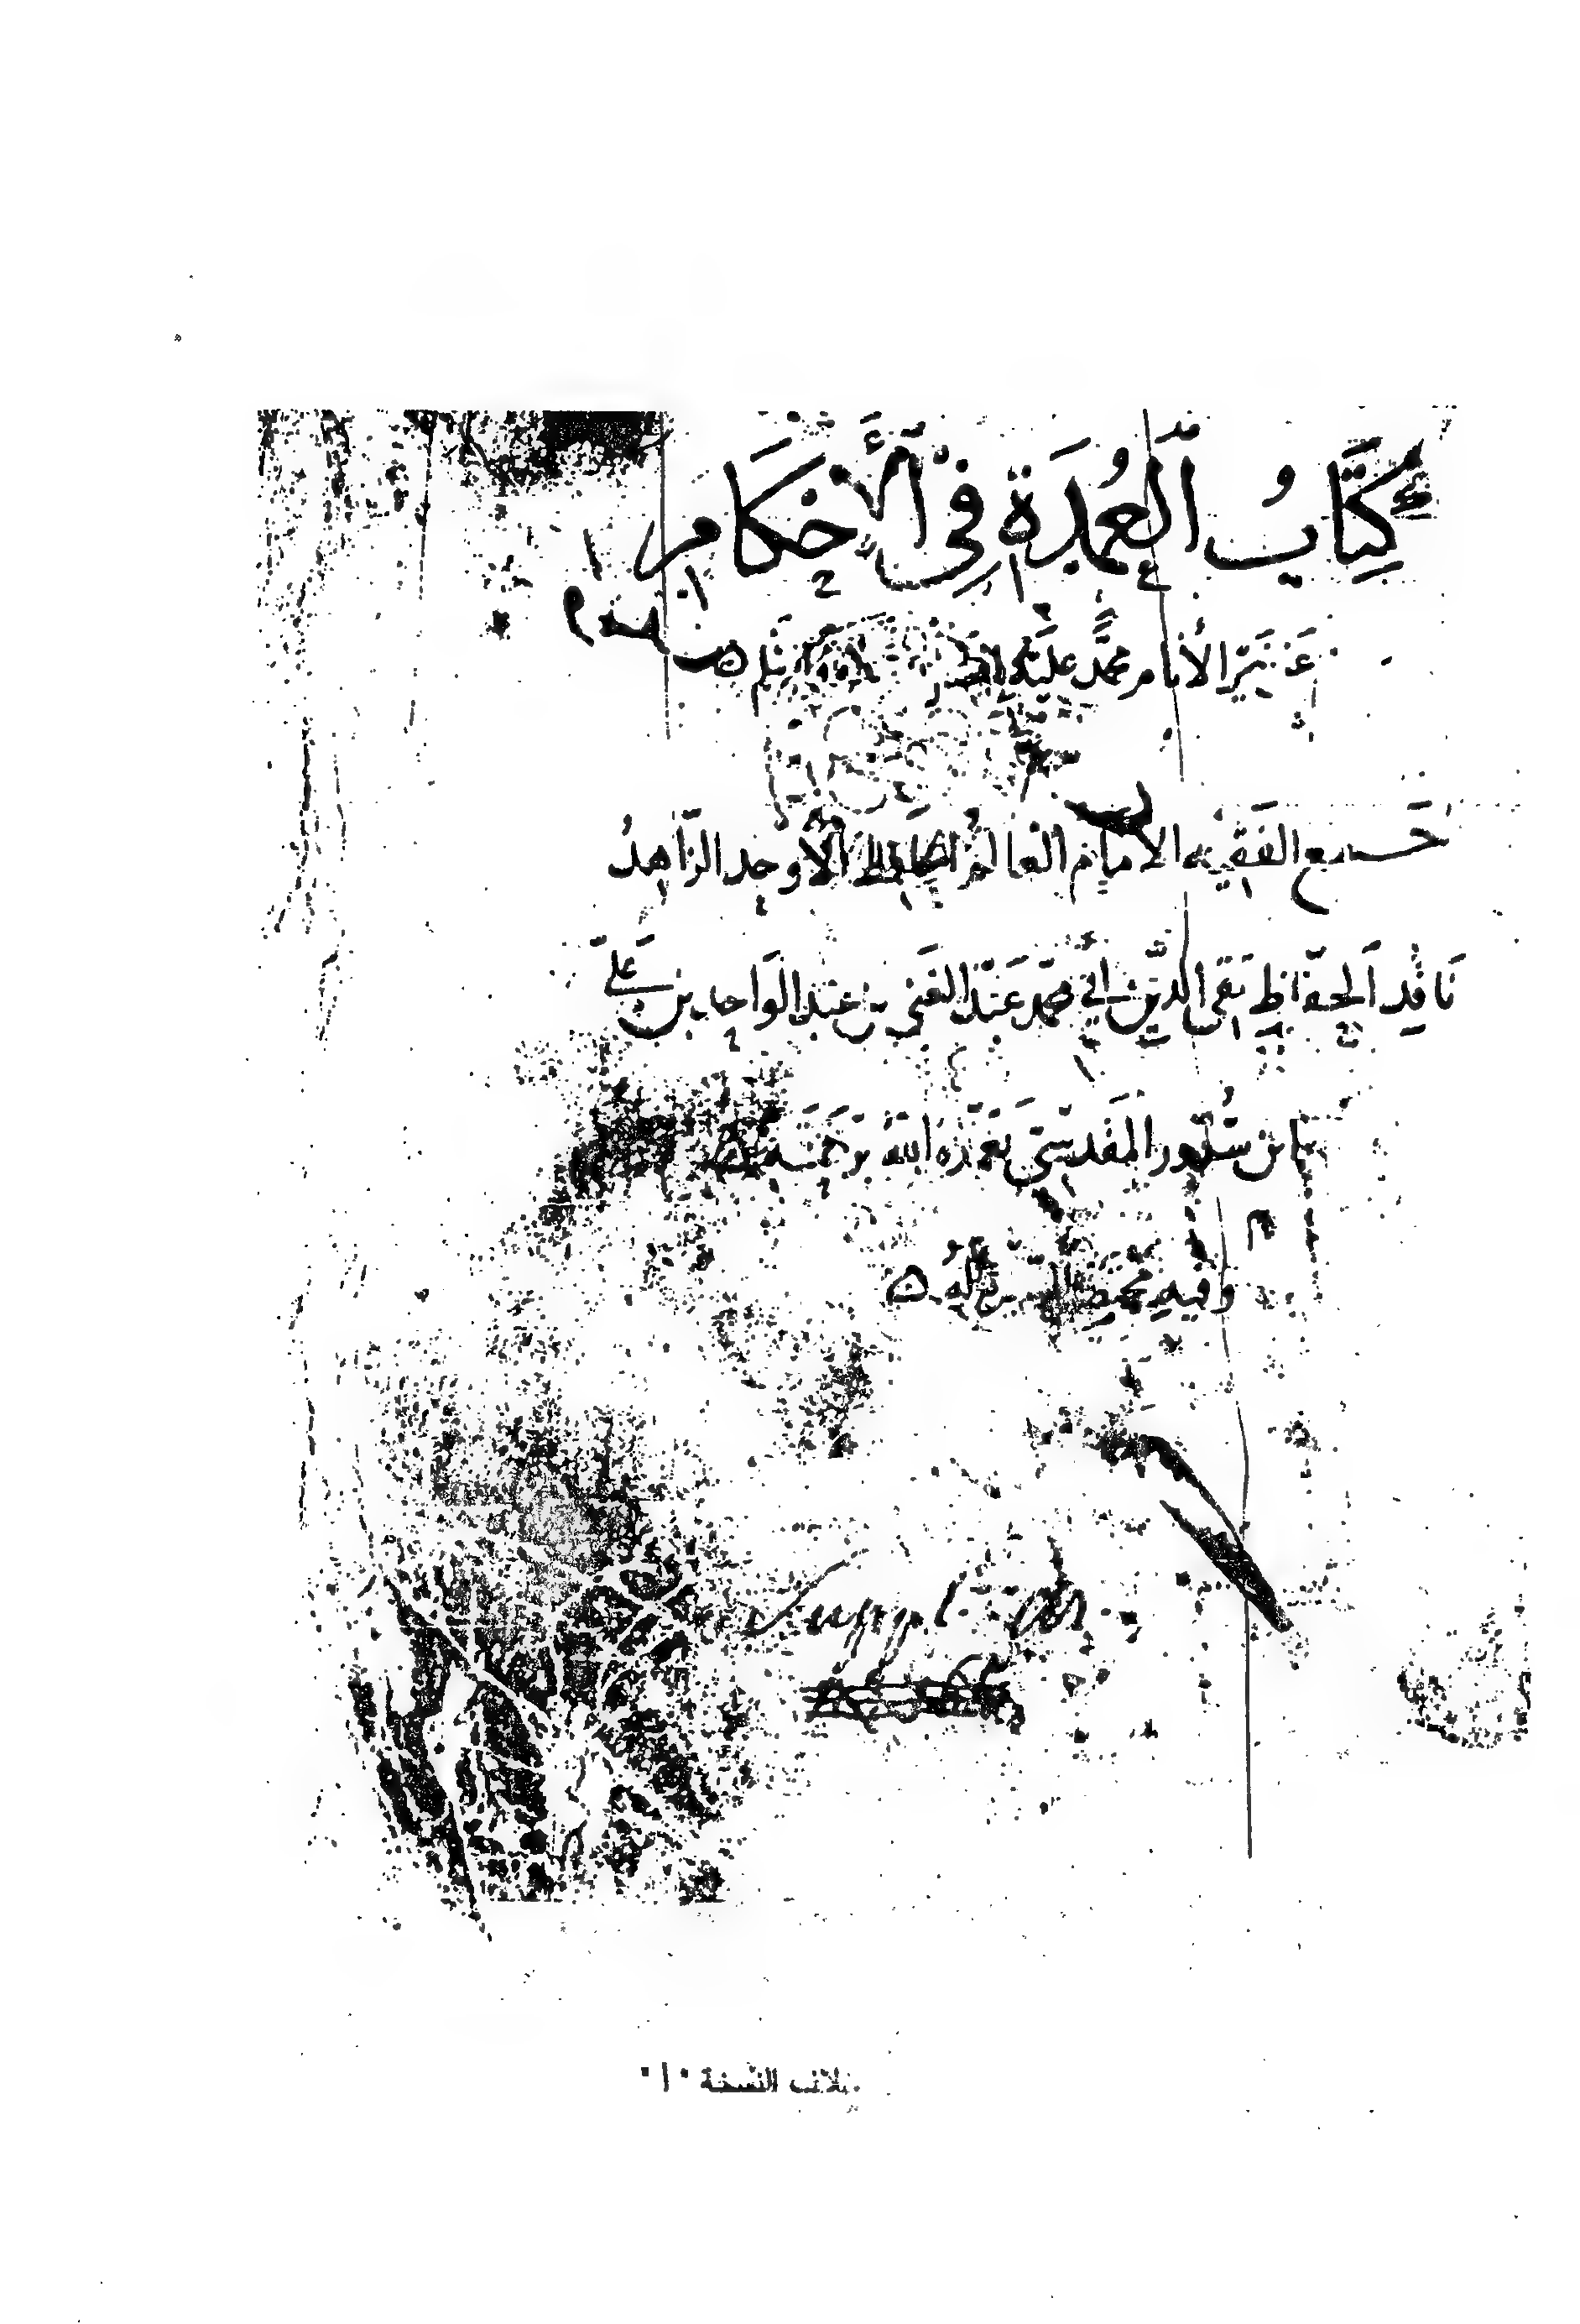 كِتَابُ اَلعُمدَة فِي اَلأَحكَامِ
عَن خَيرِ الأَنامِ محمَّدٍ عليَهِ
جمع الفَقِيه الإمام العالمُ الحافظ الأَوحد الزّاهدُ
نَاقِد اَلحفّاظِ تقى الدّين أبي محمّد عَبدُ الغَني بن عَبد الوَاحد بن عَلي
بن سُرور المَقدسِيّ تغمّدَهُ اللهُ برَحمَتِهِ
وفيهِ
Suppl. Ar.
غلاف النسخة ٠ ا ٠